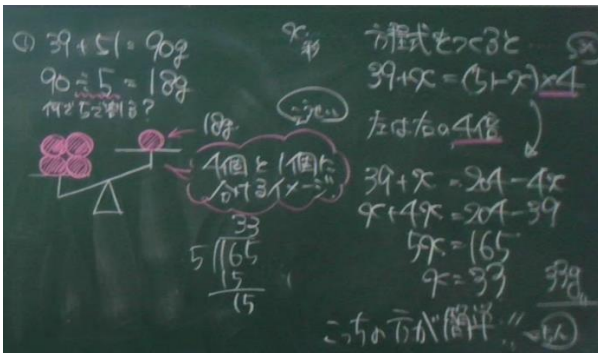 ① 39+51=90g
90÷5=18g
何で5で割る?
18g
4個と1個に
分けるイメージ
33
5 165
15
15
方程式をつくると
39+x=(51-x)×4
左は右の4倍
39+x=204-4x
x+4x=204-39
5x=165
x=33
33g
こっちの方が簡単!!